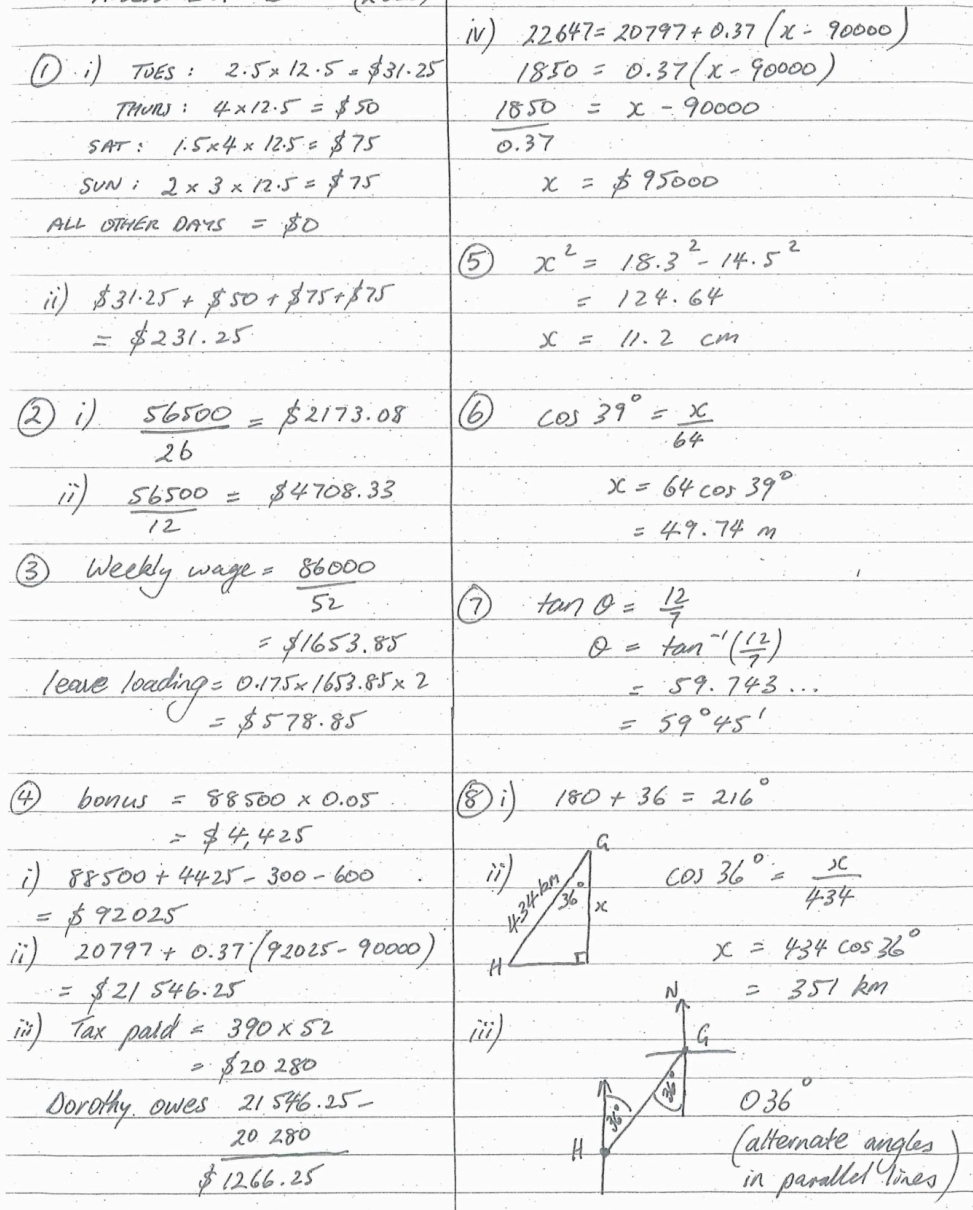 ① i) TUES : 2.5 × 12.5 = $31.25
THURS : 4 × 12.5 = $50
SAT : 1.5 × 4 × 12.5 = $75
SUN : 2 × 3 × 12.5 = $75
ALL OTHER DAYS = $0
ii) $31.25 + $50 + $75 + $75
= $231.25
② i) 56500/26 = $2173.08
ii) 56500/12 = $4708.33
③ Weekly wage = 86000/52
= $1653.85
leave loading = 0.175 × 1653.85 × 2
= $578.85
④ bonus = 88500 × 0.05
= $4,425
i) 88500 + 4425 - 300 - 600
= $92025
ii) 20797 + 0.37 (92025 - 90000)
= $21 546.25
iii) Tax paid = 390 × 52
= $20 280
Dorothy owes 21 546.25 -
20 280
$1266.25
iv) 22647 = 20797 + 0.37 (x - 90000)
1850 = 0.37 (x - 90000)
1850/0.37 = x - 90000
x = $95000
⑤ x² = 18.3² - 14.5²
= 124.64
x = 11.2 cm
⑥ cos 39° = x/64
x = 64 cos 39°
= 49.74 m
⑦ tan θ = 12/7
θ = tan⁻¹(12/7)
= 59.743...
= 59°45'
⑧ i) 180 + 36 = 216°
ii) G
434 km
36°
x
H
cos 36° = x/434
x = 434 cos 36°
= 351 km
iii) N
G
36°
36°
H
036°
(alternate angles
in parallel lines)